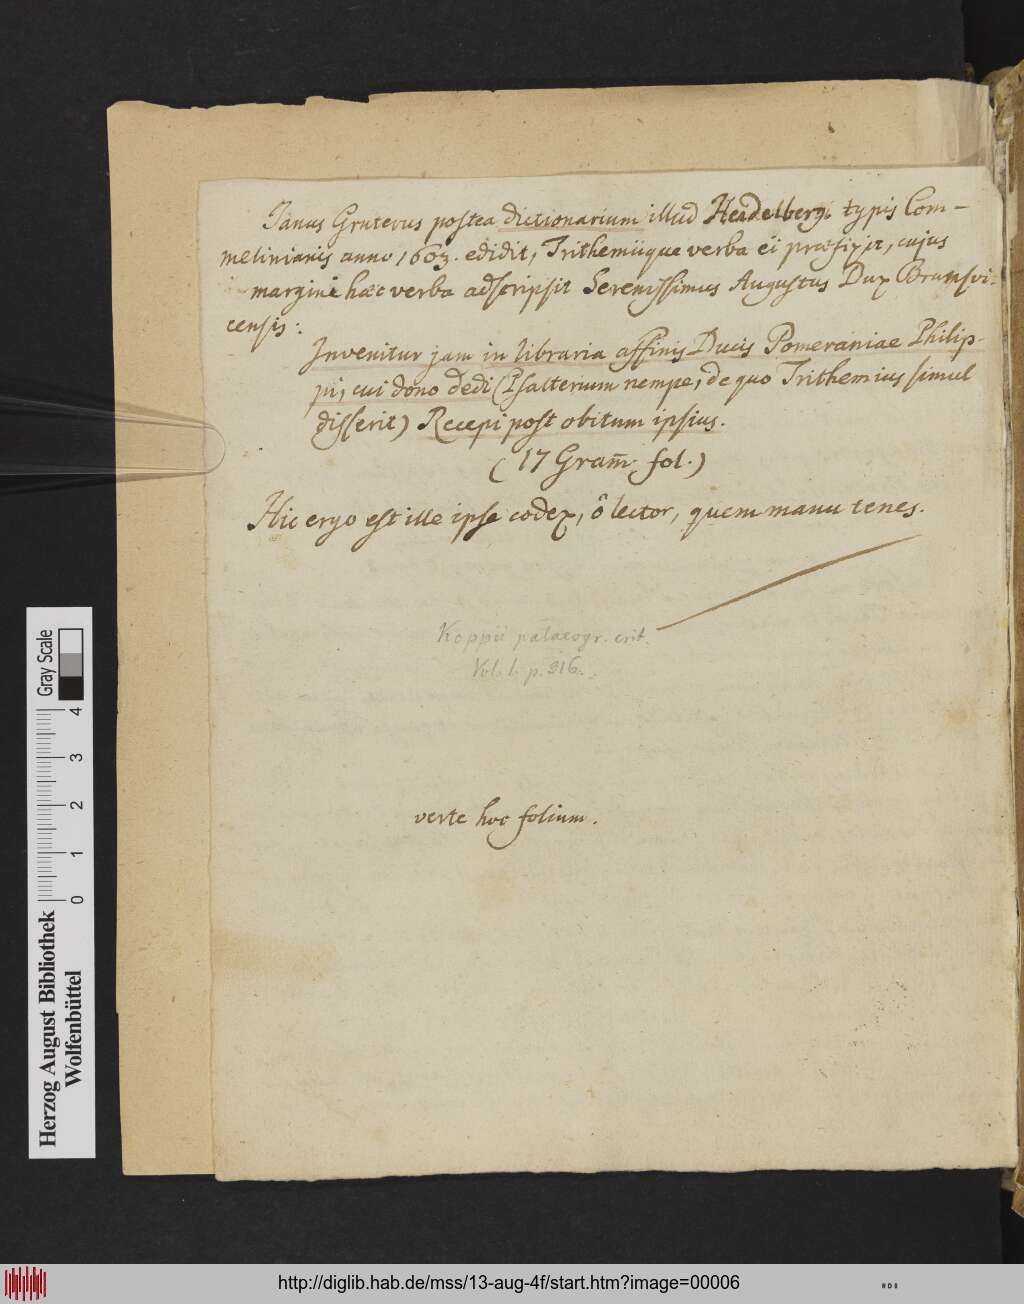 Janus Gruterus postea dictionarium illud Heidelbergi typis Com-
melinianis anno 1603. edidit, Trithemiique verba ei præfixit, cujus
margini hæc verba adscripsit Serenissimus Augustus Dux Brunsvi-
censis:
Invenitur jam in libraria affinis Ducis Pomeraniae Philip-
pi, cui dono dedi (Psalterium nempe, de quo Trithemius simul
disserit) Recepi post obitum ipsius.
(17 Gram̄. fol.)
Hic ergo est ille ipse codex, ô lector, quem manu tenes.
Koppii palaeogr. crit.
Vol. I. p. 316.
verte hoc folium.
Gray Scale
0 1 2 3 4
Herzog August Bibliothek
Wolfenbüttel
http://diglib.hab.de/mss/13-aug-4f/start.htm?image=00006